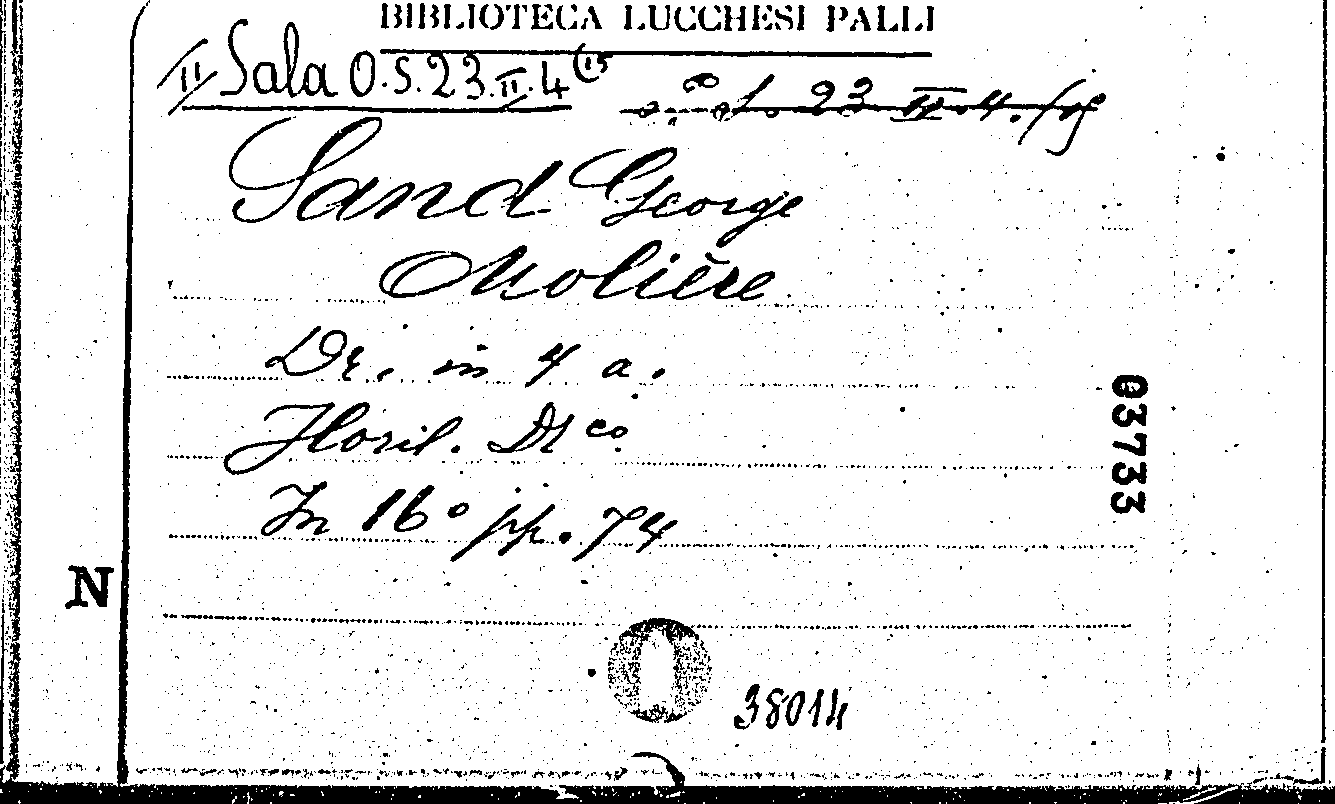 BIBLIOTECA LUCCHESI PALLI
II Sala O.S.23.II.4(15
23 II.4.(15
Sand George
Molière
Dr. in 4 a.
Floril. Dr.co
In 16° pp. 74
03733
N
38014